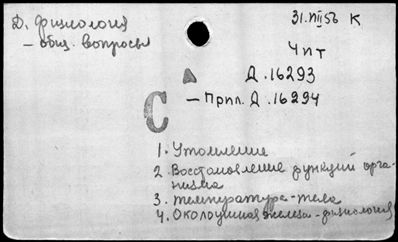 Д. физиология
31.VIII 56 К
– общ. вопросы
Чит
Д.16293
– Прил. Д.16294
С
1. Утомление
2. Восстановление функций орга-
низма
3. температура - тела
4. Околоушная железа - физиология